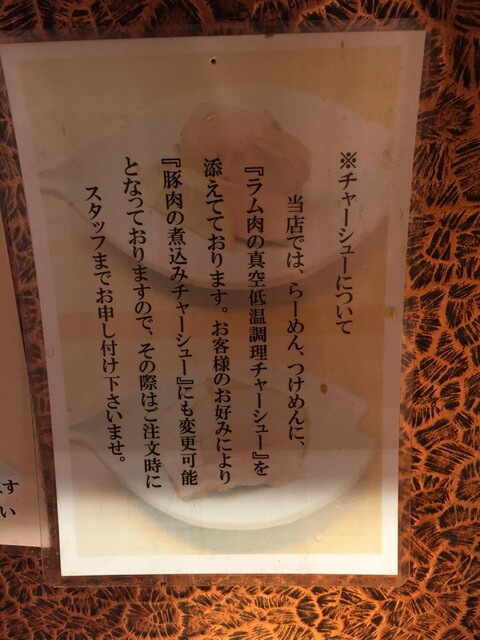 ※チャーシューについて
当店では、らーめん、つけめんに、
『ラム肉の真空低温調理チャーシュー』を
添えてております。お客様のお好みにより
『豚肉の煮込みチャーシュー』にも変更可能
となっておりますので、その際はご注文時に
スタッフまでお申し付け下さいませ。
す
い